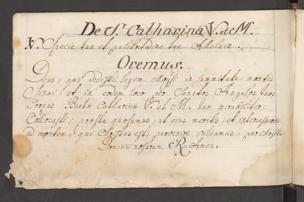 De S. Catharina V. et M.
V. Specie tua et pulchritudine tua Adalexa.
Oremus.
Deus, qui dedisti legem Moysi in summitate montis
Sinai, et in eodem loco per Sanctos Angelos tuos
Corpus Beatae Catharinae V. et M. tuae mirabiliter
Collocasti; praesta quaesumus, ut eius meritis et intercessione
ad montem, qui Christus est, pervenire valeamus, per Christum
Dominum nostrum. R. Amen.